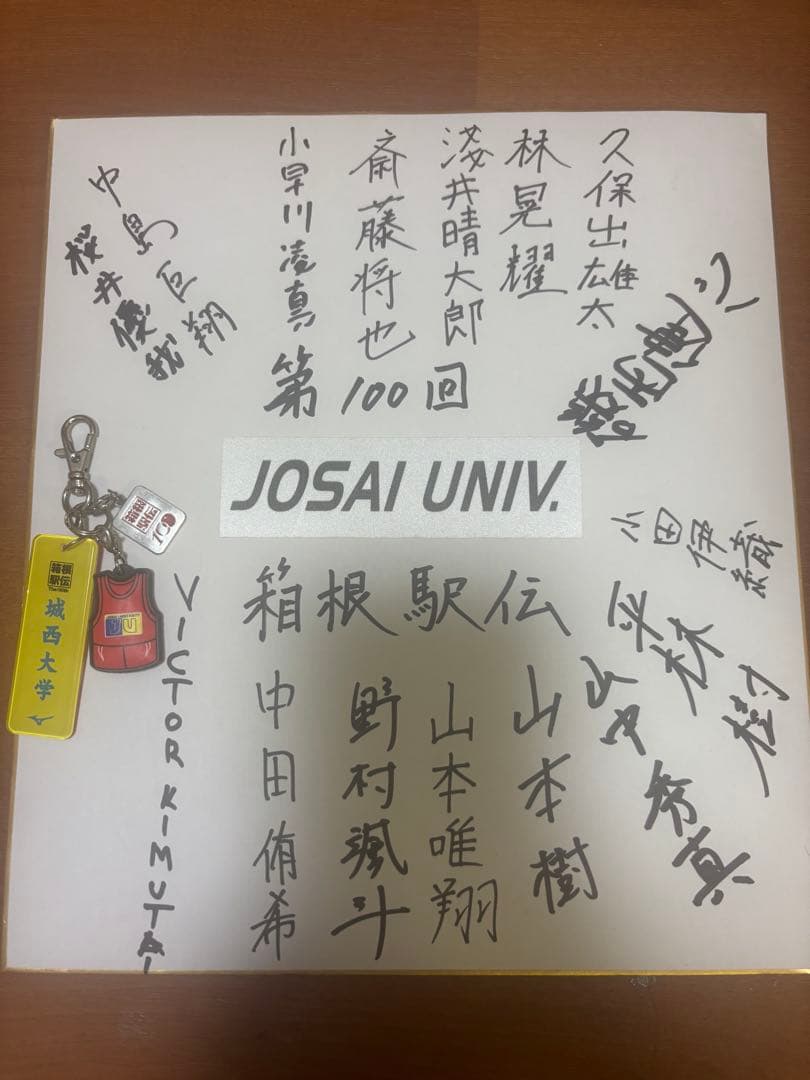 久保出雄太
林晃耀
浅井晴大郎
斎藤将也
小早川凌真
中島巨翔
桜井優我
第100回
JOSAI UNIV.
箱根駅伝
小田伊織
平林樹
山中秀真
山本樹
山本唯翔
野村颯斗
中田侑希
VICTOR KIMUTAI
箱根駅伝
城西大学
100